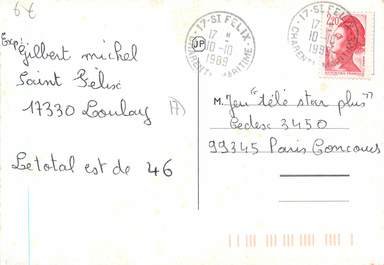 6€
Exp: Gilbert michel
Saint Félix
17330 Loulay
17
Le total est de 46
17 - ST FELIX
17 H
10-10
1989
CHARENTE MARITIME
JP
17 - ST FELIX
17
10-10
1989
2,20
M. Jeu "télé star plus"
Cedex 3450
99345 Paris Concours